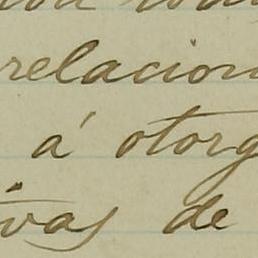 relacion
á otorg
ivas de